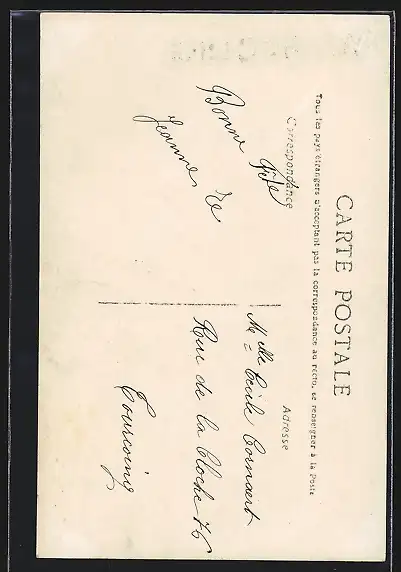 CARTE POSTALE
Tous les pays étrangers n'acceptant pas la correspondance au recto, se renseigner à la Poste
Correspondance
Bonne Fête
Jeanne
Adresse
Mlle Cécile Cornaert
Rue de la Cloche 76
Tourcoing